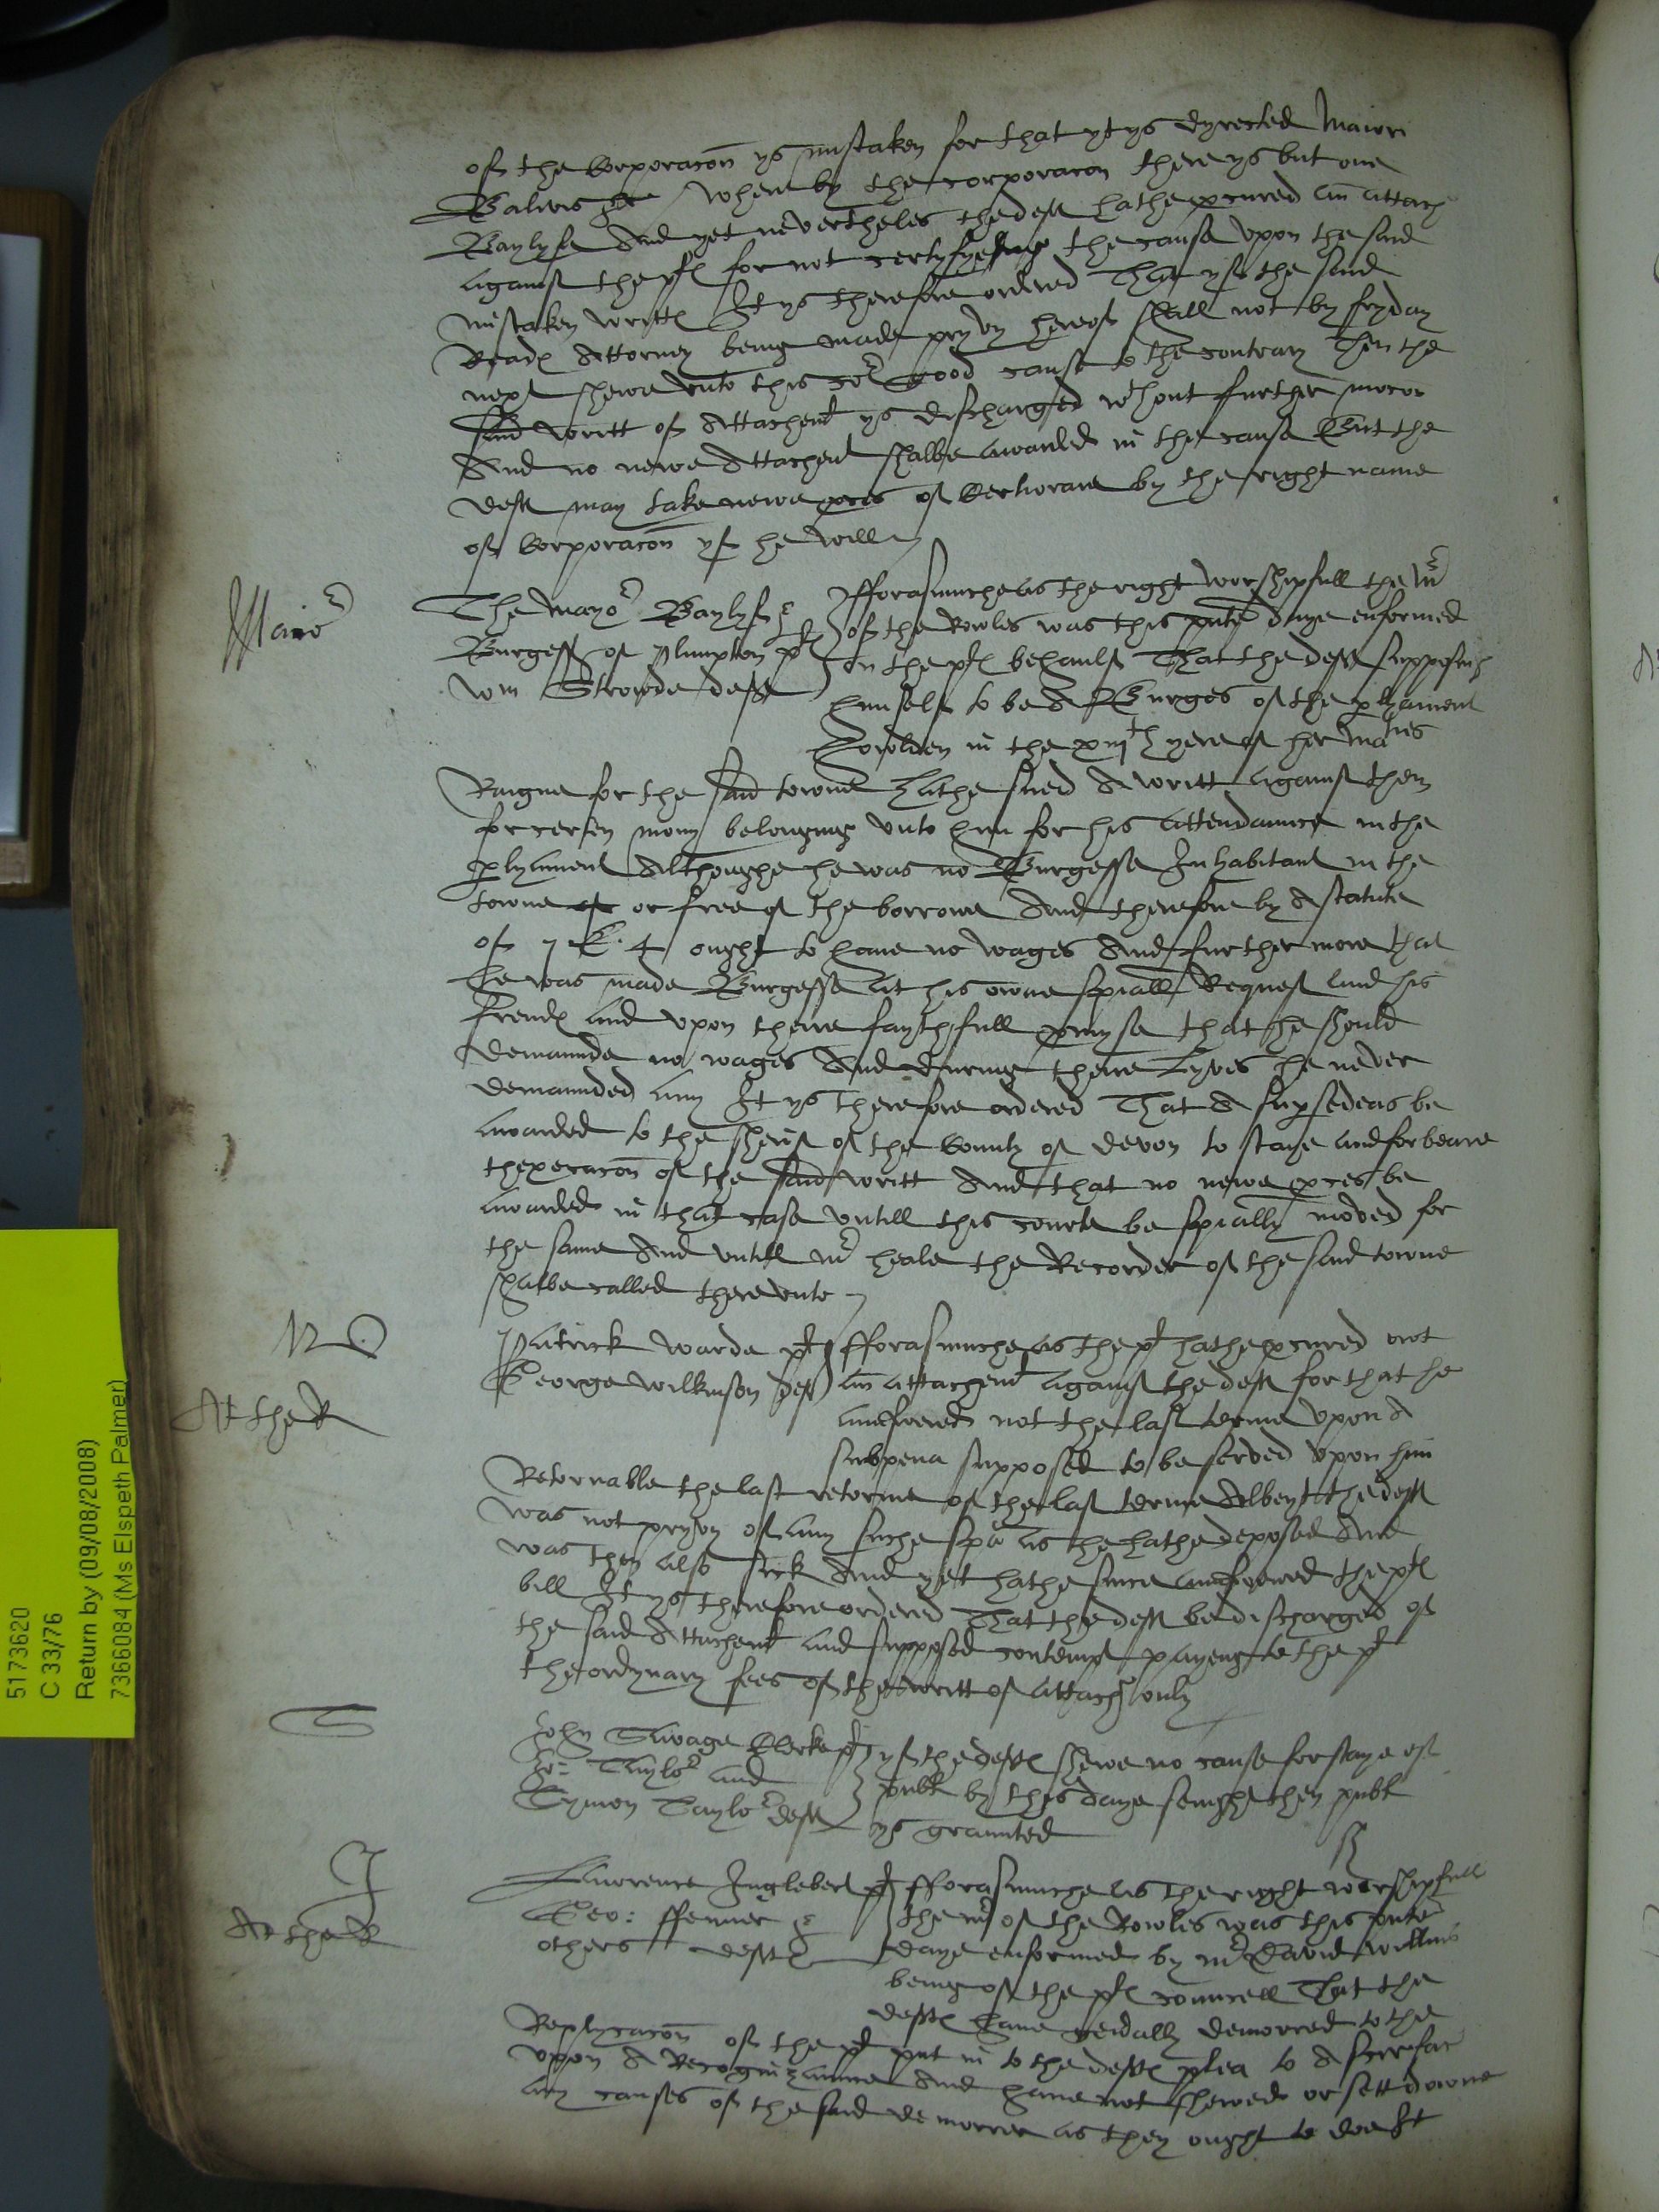 of the Corporacon ys mistaken for that yt ys dyrected Maiori
Balivis &c where by the corporacon there ys but one
Baylyfe And yet nevertheles the deft hathe pcured an attach
against the plt for not certyfyeing the cause upon the said
mistaken writt It ys therefore ordered That yf the said
Reade Attorney being made pryvy hereof shall not by fryday
next shewe unto this cort good cause to the contrary Then the
said writt of Attachemt ys discharged wthout further mocon
And no newe Attachemt shalbe awarded in the cause But the
deft may take newe pces of Certiorare by the right name
of Corporacon yf he will
Maior
The mayor Baylyfe &
Burgess of Plimpton plt
Wm Strowde deft
fforasmuche as the right worshipfull the Mr
of the Rowles was this pnte daye enformed
on the plt behaulf That the deft supposing
himself to be A Burges of the plyament
howlden in the xiijth yere of her Maties
Raigne for the said towne hathe sued A writt against them
for certen mony belonging unto him for his attendaunce in the
plyament Althoughe he was no Burgesse Inhabitant in the
towne of or free of the borrowe And therefore by A statute
of 7 E. 4 ought to have no wages And further more that
he was made Burgesse at his owne spiall Request and his
frends and upon there faythfull promyse that he should
demaunde no wages And during there Lyves he never
demaunded any It ys therefore ordered That A supsedeas be
awarded to the sherif of the County of Devon to staye and forbeare
thexecucon of the said writt And that no newe pces be
awarded in that case untill this courte be spially moved for
the same And untill mr heale the Recorder of the said towne
shalbe called thereunto
At the R
Patrick Warde plt
George Wilkinson deft
fforasmuche as the plt hathe pcured out
an attachemt against the deft for that he
aunswered not the last terme upon A
subpena supposed to be served upon him
Retornable the last retorne of the last terme Albeyt the deft
was not pryvy of any suche spa as he hathe deposed And
was then also sick And yet hathe since aunswered the plt
bill It ys therefore ordered That the deft be discharged of
the said Attachemt and supposed contempt payeng to the plt
the ordynary fees of the writt of attachmt only
S
John Savage Clerke plt
Jo: Taylor and
Symon Taylor deft
yf the defts shewe no cause for staye of
publ by this daye senight then publ
ys graunted
J
At the R
Laurence Inglebert plt
Geo: ffenner &
others defts
fforasmuche as the right worshipfull
the mr of the Rowles was this pnte
daye enformed by mr David Willms
being of the plt councell That the
defts have genially demorred to the
Replycacon of the plt put in to the defts plea to A scire fac
upon A Recognizaunce And have not shewed or sett downe
any causes of the said demorrer as they ought to doe It
5173620
C 33/76
Return by (09/08/2008)
7366084 (Ms Elspeth Palmer)